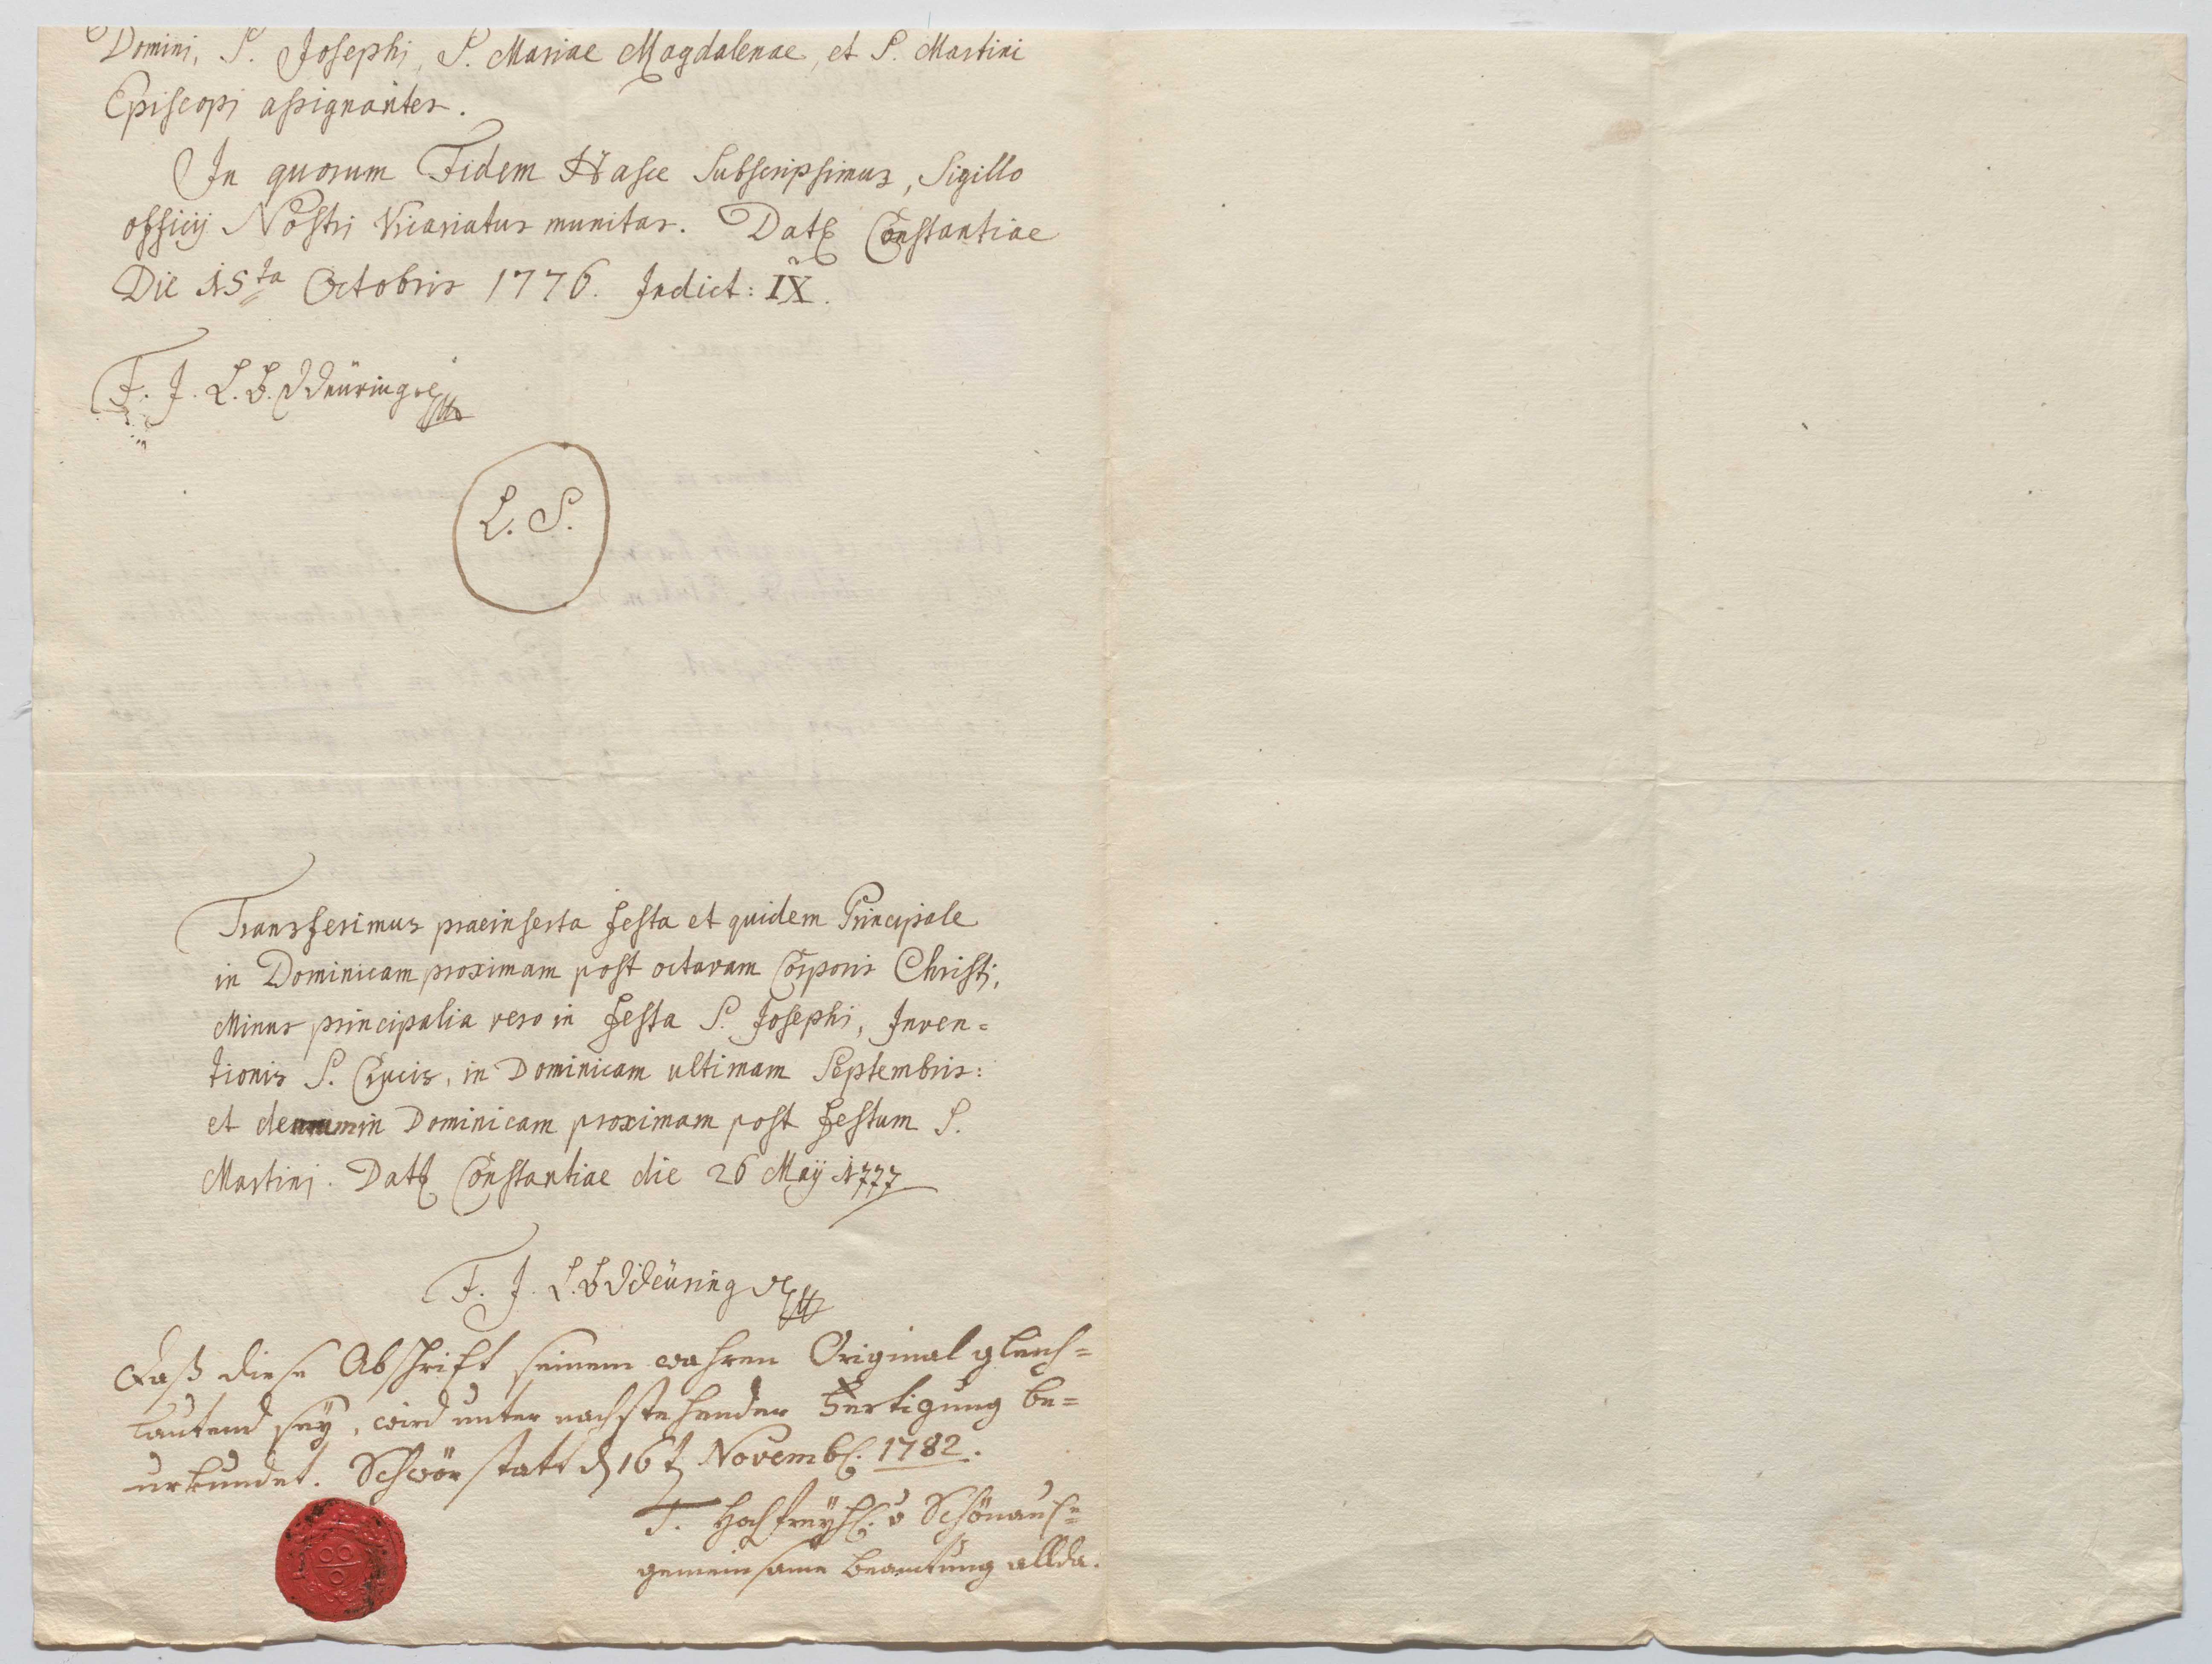 Domini, S. Josephi, S. Mariae Magdalenae, et S. Martini
Episcopi assignantes.
In quorum Fidem Hasce Subscripsimus, Sigillo
officij Nostri Vicariatus munitas. Dat Constantiae
Die 15ta Octobris 1776. Indict: IX.
F. J. L. B. Deüring
L. S.
Transferimus praeinserta festa et quidem Principale
in Dominicam proximam post octavam Corporis Christi,
Minus principalia vero in festa S. Josephi, Inven=
tionis S. Crucis, in Dominicam ultimam Septembris:
et demum in Dominicam proximam post festum S.
Martini. Dat Constantiae die 26 Maij 1777
F. J. L. B. Deüring
Daß diese Abschrift seinem wahren Original gleich=
lautend seÿ, wird unter nachstehender Fertigung be=
urkundet. Schwörstatt d 16t Novemb. 1782.
Hochfreÿh. v Schönauis=
gemeinsame Beamtung allda.